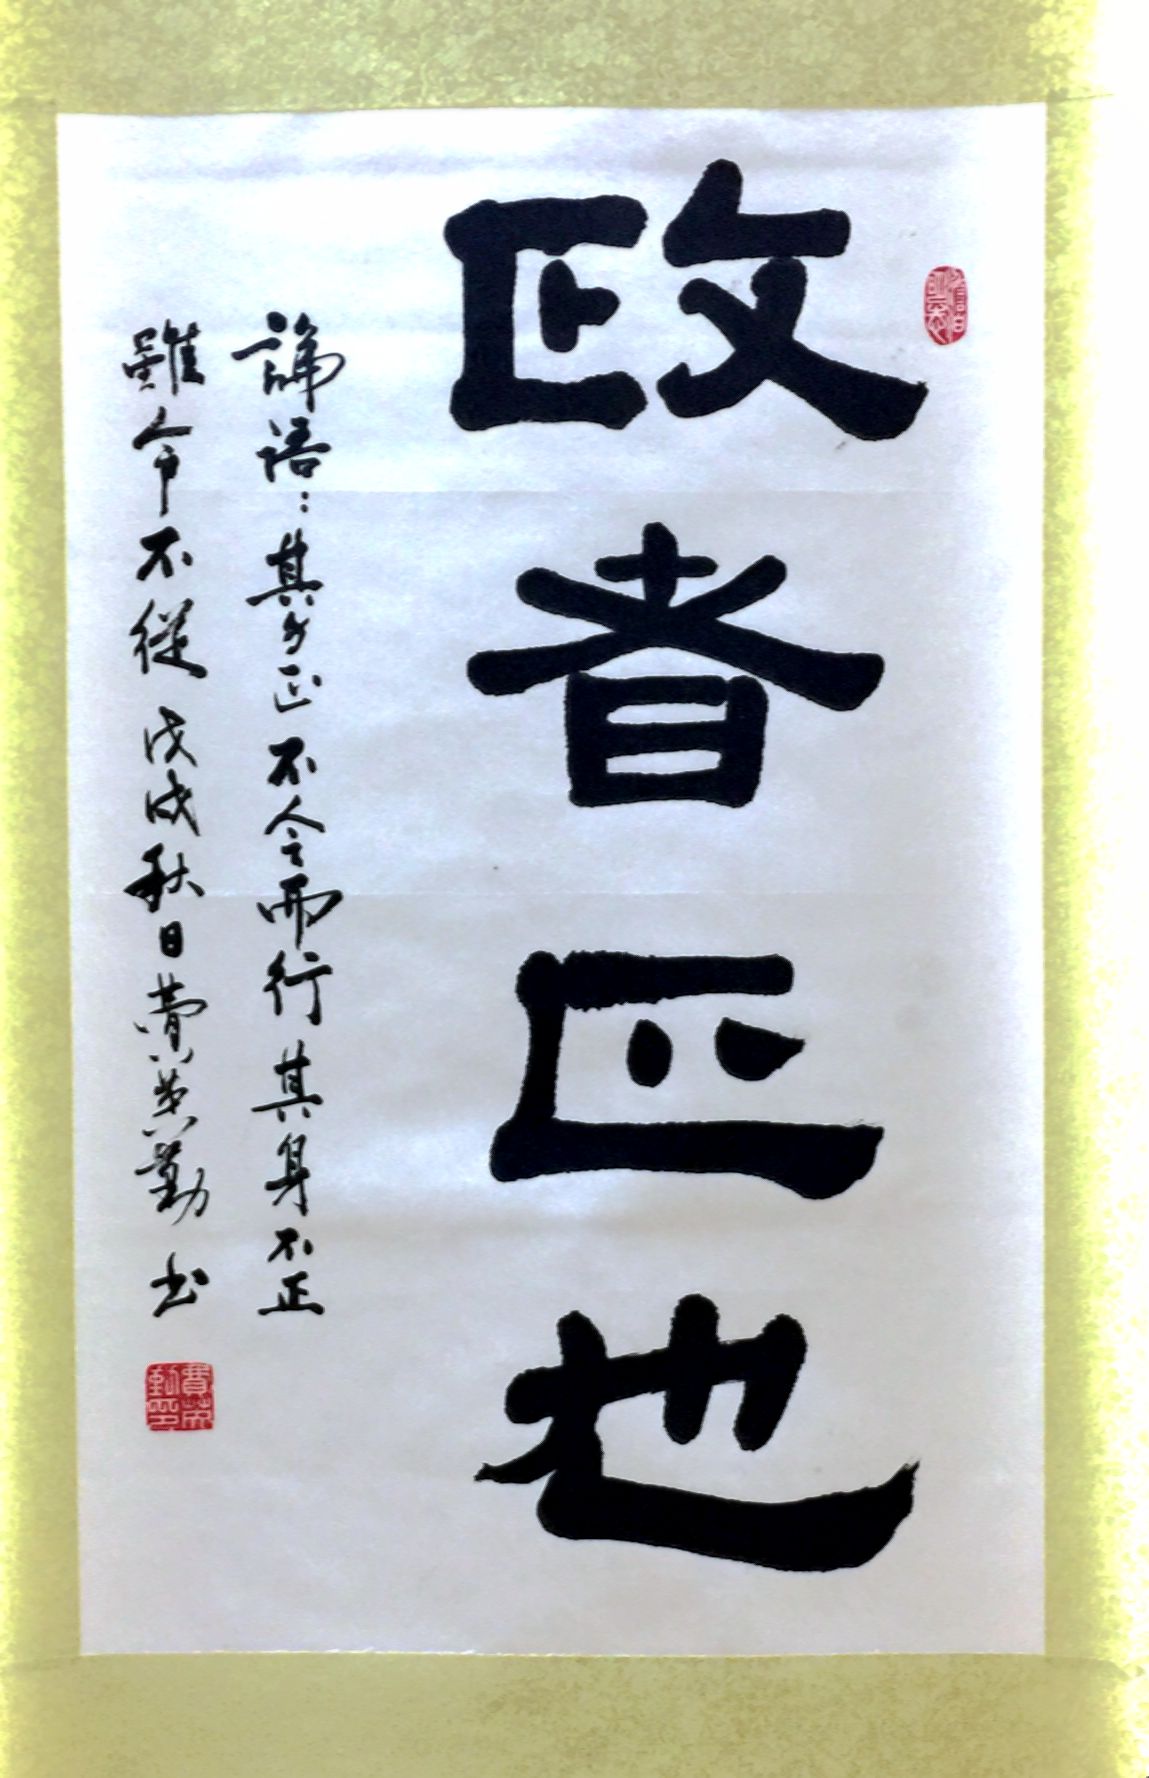 政者正也
論語：其身正不令而行其身不正
雖令不從 戊戌秋日費英勤书
費英勤印